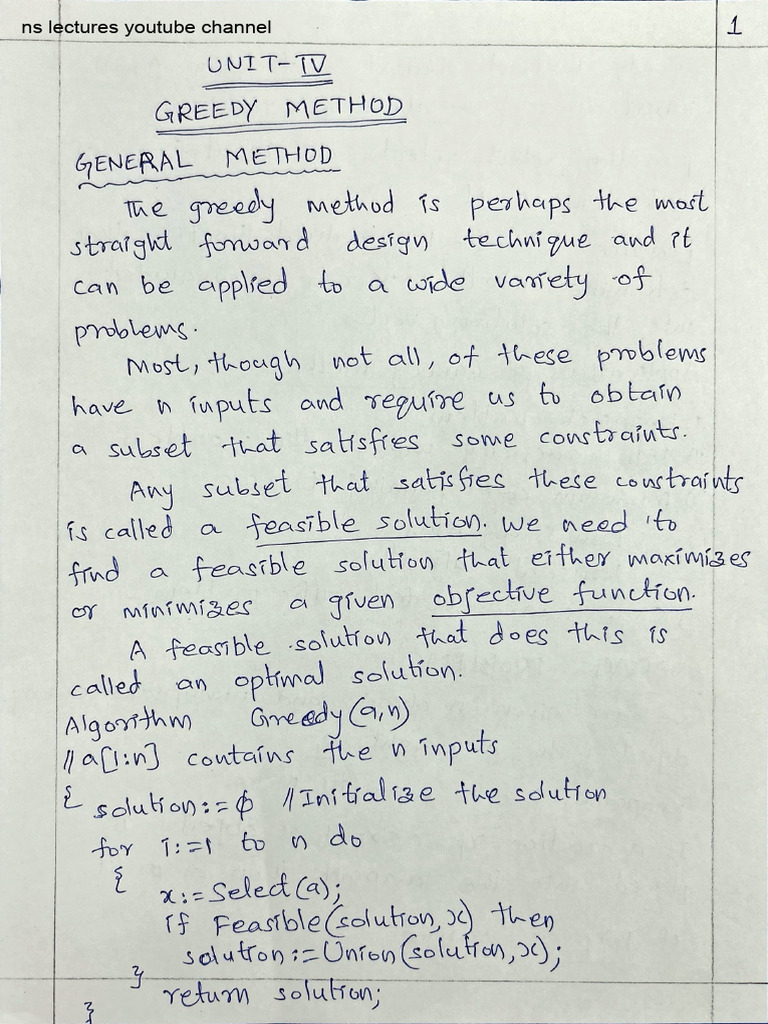 ns lectures youtube channel
1
UNIT-IV
GREEDY METHOD
GENERAL METHOD
The greedy method is perhaps the most
straight forward design technique and it
can be applied to a wide variety of
problems.
Most, though not all, of these problems
have n inputs and require us to obtain
a subset that satisfies some constraints.
Any subset that satisfies these constraints
is called a feasible solution. We need to
find a feasible solution that either maximizes
or minimizes a given objective function.
A feasible solution that does this is
called an optimal solution.
Algorithm Greedy(a,n)
//a[1:n] contains the n inputs
{ solution:=ϕ //Initialize the solution
for i:=1 to n do
{ x:=Select(a);
if Feasible(solution,x) then
solution:=Union(solution,x);
}
return solution;
}